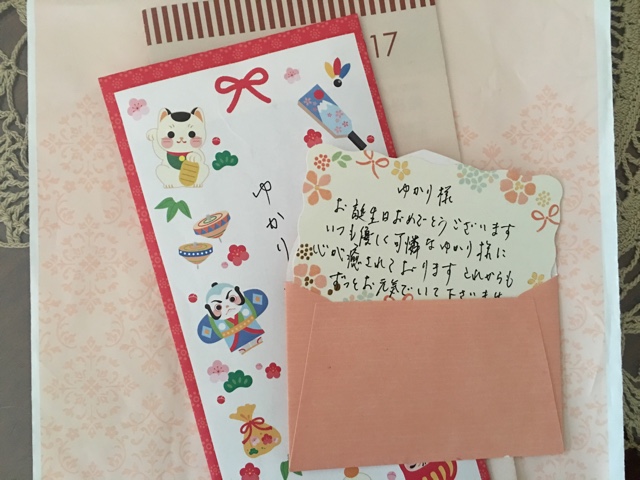 17
ゆかり
ゆかり様
お誕生日おめでとうございます
いつも優しく可憐なゆかり様に
心が癒されております これからも
ずっとお元気でいて下さいませ